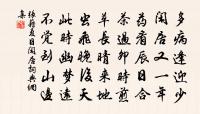 多病逢迎少
閑居又一年
藥看辰日合
茶過卯時煎
草長晴來地
蟲飛晚後天
此時幽夢遠
不覺到山邊
張籍夏日閑居詞典網
集